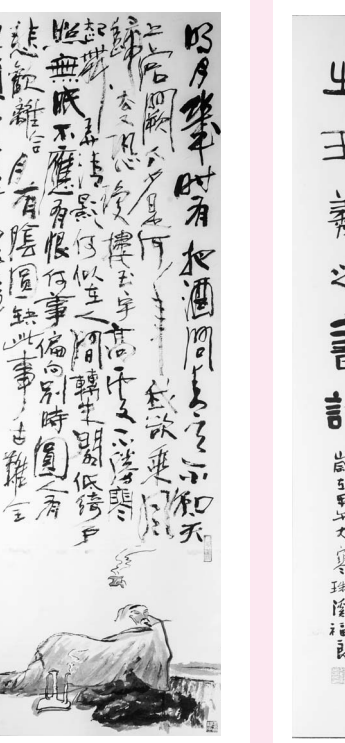 明月幾時有把酒問青天不知天
上宮闕今夕是何年我欲乘風
歸去又恐瓊樓玉宇高處不勝寒
起舞弄清影何似在人間轉朱閣低綺戶
照無眠不應有恨何事偏向別時圓人有
悲歡離合月有陰圓缺此事古難全
王羲之書
歲在大寒珠溪福